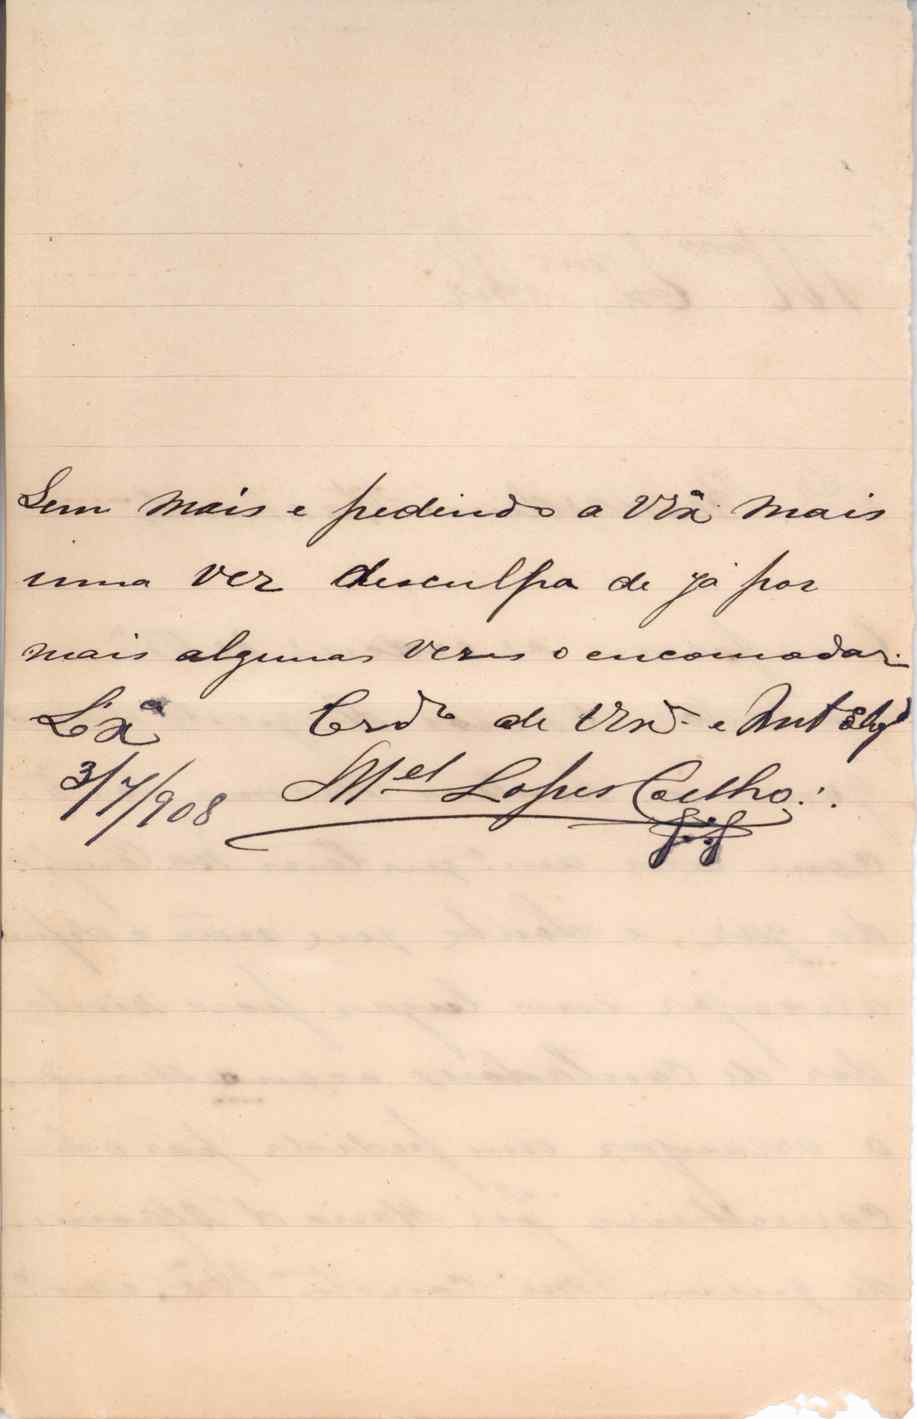 Sem mais e pedindo a Vexª mais
uma vez desculpa de já por
mais algumas vezes o encomodar.
Lxª Crdº de Vexª e Mut Obgº
3/7/908 Mel Lopes Coelho